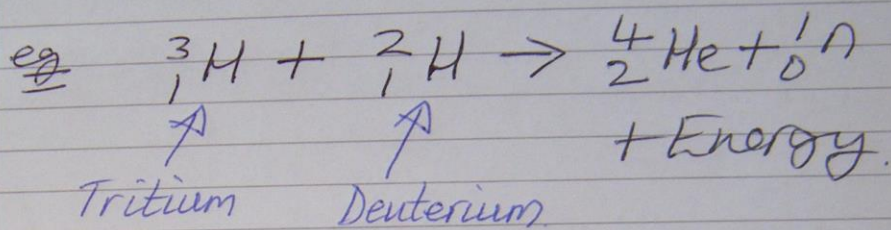 eg ³₁H + ²₁H → ⁴₂He + ¹₀n
+ Energy.
Tritium Deuterium